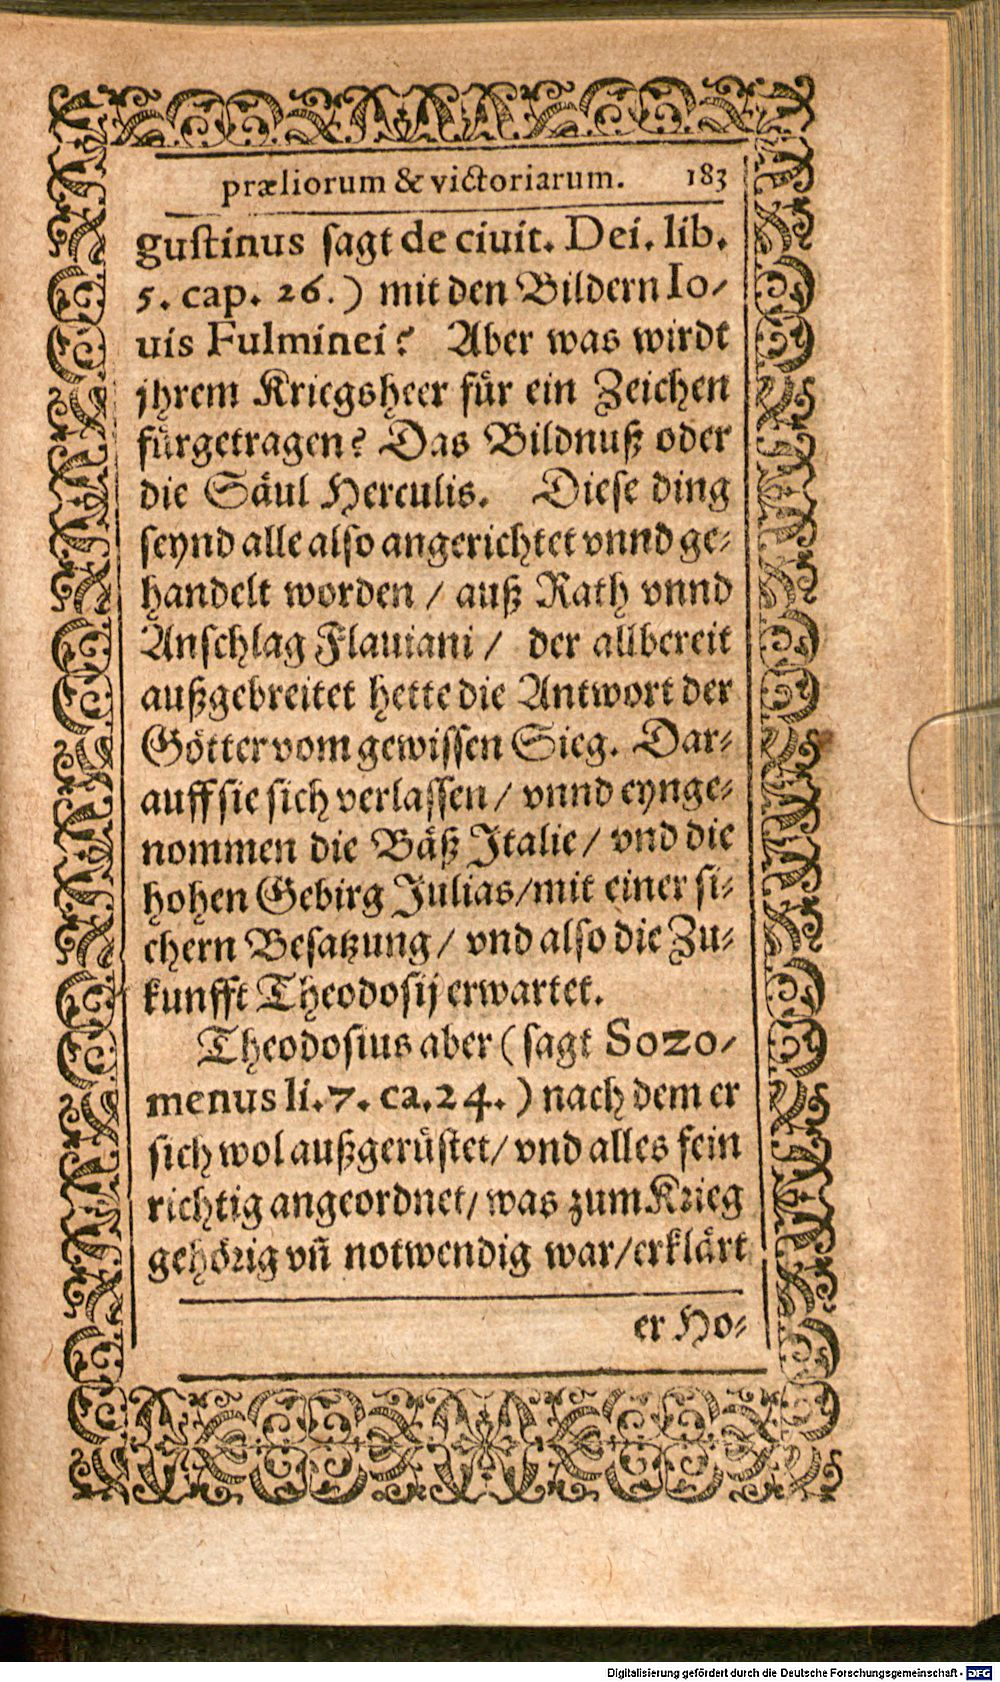 præliorum & victoriarum. 183
gustinus sagt de ciuit. Dei. lib.
5. cap. 26.) mit den Bildern Io-
uis Fulminei? Aber was wirdt
jhrem Kriegsheer für ein Zeichen
fürgetragen? Das Bildnuß oder
die Säul Herculis. Diese ding
seynd alle also angerichtet vnnd ge-
handelt worden / auß Rath vnnd
Anschlag Flauiani / der allbereit
außgebreitet hette die Antwort der
Götter vom gewissen Sieg. Dar-
auff sie sich verlassen / vnnd eynge-
nommen die Bäß Italie / vnd die
hohen Gebirg Julias / mit einer si-
chern Besatzung / vnd also die Zu-
kunfft Theodosij erwartet.
Theodosius aber (sagt Sozo-
menus li. 7. ca. 24.) nach dem er
sich wol außgerüstet / vnd alles fein
richtig angeordnet / was zum Krieg
gehörig vñ notwendig war / erklärt
er Ho-
Digitalisierung gefördert durch die Deutsche Forschungsgemeinschaft - DFG